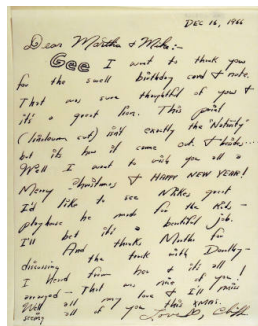 DEC 16, 1966
Dear Martha & Mike:-
Gee I want to thank you
for the swell birthday card & note.
That was sure thoughtful of you &
it's a great line. This print
(linoleum cut) isn't exactly the "Nativity"
but its how it came out. & besides...
Well I want to wish you all a
Merry Christmas & HAPPY NEW YEAR!
I'd like to see Mikes great
playhouse he made for the kids -
I'll bet its a beautiful job.
And thanks Martha for
discussing the trunk with Dorothy -
I heard from her & its all
arranged - That was nice of you!
Well all my love & I'll miss
seeing all of you this xmas.
Love,